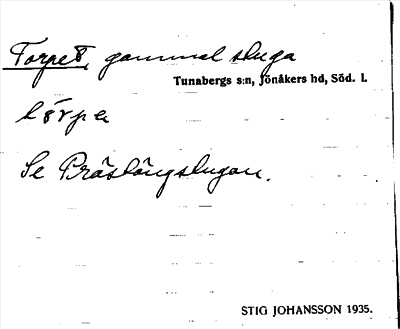 Torpet, gammal sluga
Tunabergs s:n, Jönåkers hd, Söd. l.
Se Präslängslugan.
STIG JOHANSSON 1935.